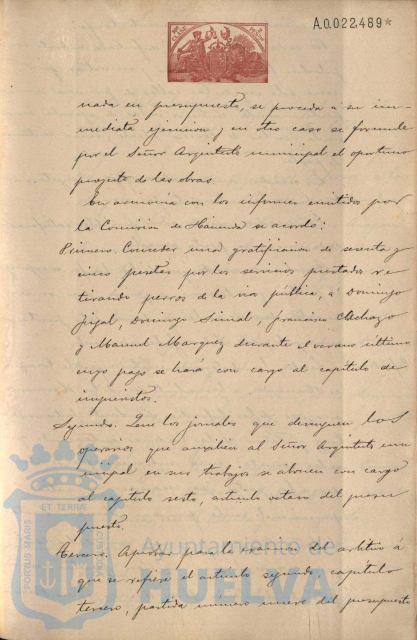 A.0.022.489*
nada en presupuesto, se proceda a su in-
mediata ejecucion y en otro caso se formule
por el Señor Arquitecto municipal el oportuno
proyecto de las obras.
En armonía con los informes emitidos por
la Comisión de Hacienda se acordó:
Primero. Conceder una gratificación de sesenta y
cinco pesetas por los servicios prestados re-
tirando perros de la vía pública, á Domingo
Domingo Francisco
y Manuel Marquez durante el verano último
cuyo pago se hará con cargo al capítulo de
imprevistos.
Segundo. Que los jornales que devenguen los
operarios que auxilien al Señor Arquitecto mu-
nicipal en sus trabajos se abonen con cargo
al capítulo sesto, artículo octavo del presu-
puesto.
Tercero. Aprobar para la del arbitrio á
que se refiere el artículo segundo, capítulo
tercero, partida número nueve del presupuesto
PORTUS MARIS
ET TERRÆ
Ayuntamiento de
HUELVA